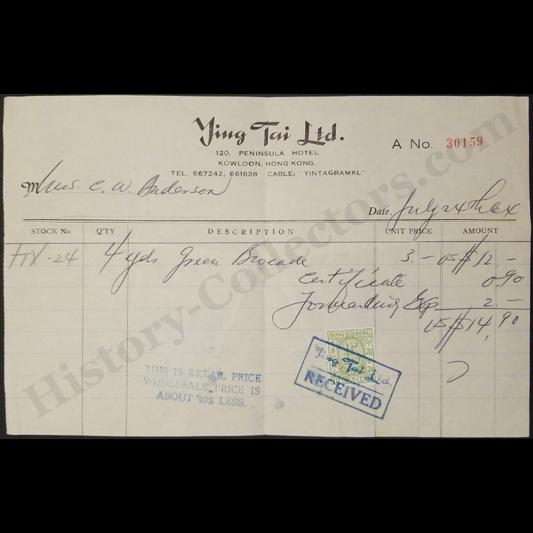 Ying Tai Ltd.
120, PENINSULA HOTEL
KOWLOON, HONG KONG.
TEL. 667242, 661638 CABLE: "YINTAGRAMKL"
A No. 30159
Mrs. C. W. Anderson
Date, July 24th 64
STOCK No. Q'TY DESCRIPTION UNIT PRICE AMOUNT
HX-24 4 yds Green Brocade 3.— US$12 —
Certificate 0.90
Forwarding Exp 2 —
US$14.90
HONG KONG
Ying Tai Ltd.
RECEIVED
THIS IS RETAIL PRICE
WHOLESALE PRICE IS
ABOUT 30% LESS.
History-Collectors.com